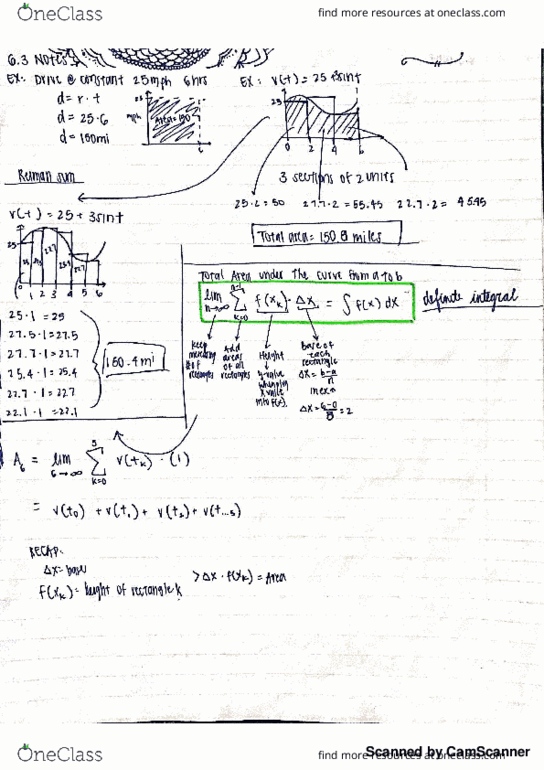 OneClass
find more resources at oneclass.com
6.3 Notes
EX: Drive @ constant 25mph 6hrs
d = r · t
d = 25 · 6
d = 150mi
25
mph
Area = 150
EX: v(t) = 25 + 3sint
25
0 2 4 6
3 sections of 2 units
25 · 2 = 50 27.7 · 2 = 55.45 22.7 · 2 = 45.45
Total area = 150.8 miles
Reiman sum
v(t) = 25 + 3sint
25
0 1 2 3 4 5 6
25 · 1 = 25
27.5 · 1 = 27.5
27.7 · 1 = 27.7
25.4 · 1 = 25.4
22.7 · 1 = 22.7
22.1 · 1 = 22.1
150.4 mi
Total Area under the curve from a to b
lim n→∞ n-1 ∑ k=0 f(xk) · Δx = ∫ f(x) dx
definite integral
keep increasing # of rectangles
Add areas of all rectangles
Height
y-value when plug x value into f(x).
base of each rectangle
Δx = b-a/n
Δx = 6-0/3 = 2
A6 = lim 6→∞ 5 ∑ k=0 v(tk) · (1)
= v(t0) + v(t1) + v(t2) + v(t...5)
RECAP:
Δx = base
f(xk) = height of rectangle k
> Δx · f(xk) = Area
OneClass
find more resources at oneclass.com
Scanned by CamScanner